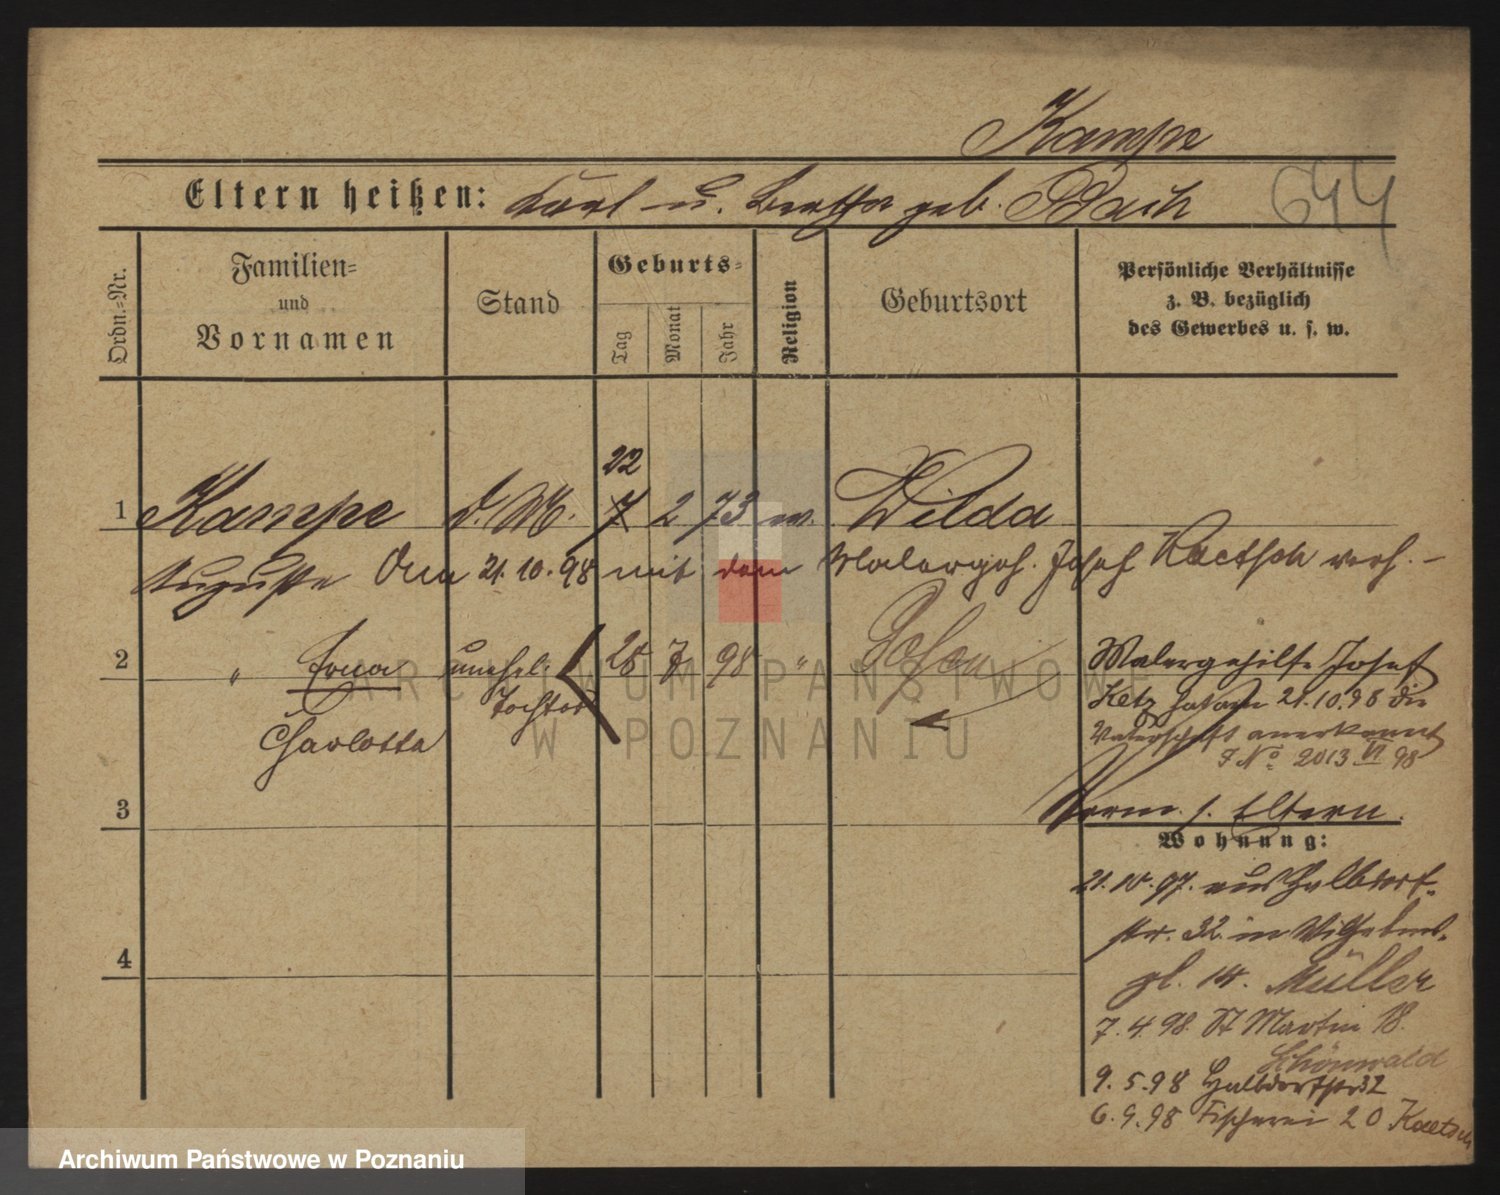 Kampe
Eltern heißen: Karl u. Bertha geb. Bach
644
Ordn.-Nr.
Familien-
und
Vornamen
Stand
Geburts-
Tag
Monat
Jahr
Religion
Geburtsort
Persönliche Verhältnisse
z. B. bezüglich
des Gewerbes u. s. w.
22
1 Kampe d. M. 7 2 73 ev. Wilda
Auguste Am 21.10.98 mit dem Malergeh. Josef Kaetsch verh. -
2 " Erna unehel. 28 7 98 " Posen
Tochter
Charlotte
Malergehilfe Josef
hat am 21.10.98 die
Vaterschaft anerkannt
J No 2013 VI 98
3
Verm. s. Eltern.
Wohnung:
21.10.97. aus Halbdorf-
str. 32. in Wilhelms-
pl. 14. Müller
4
7.4.98. St Martin 18.
Schönwald
9.5.98 Halbdorfstr 32
6.9.98 Fischerei 20 Kaetsch
ARCHIWUM PAŃSTWOWE
W POZNANIU
Archiwum Państwowe w Poznaniu